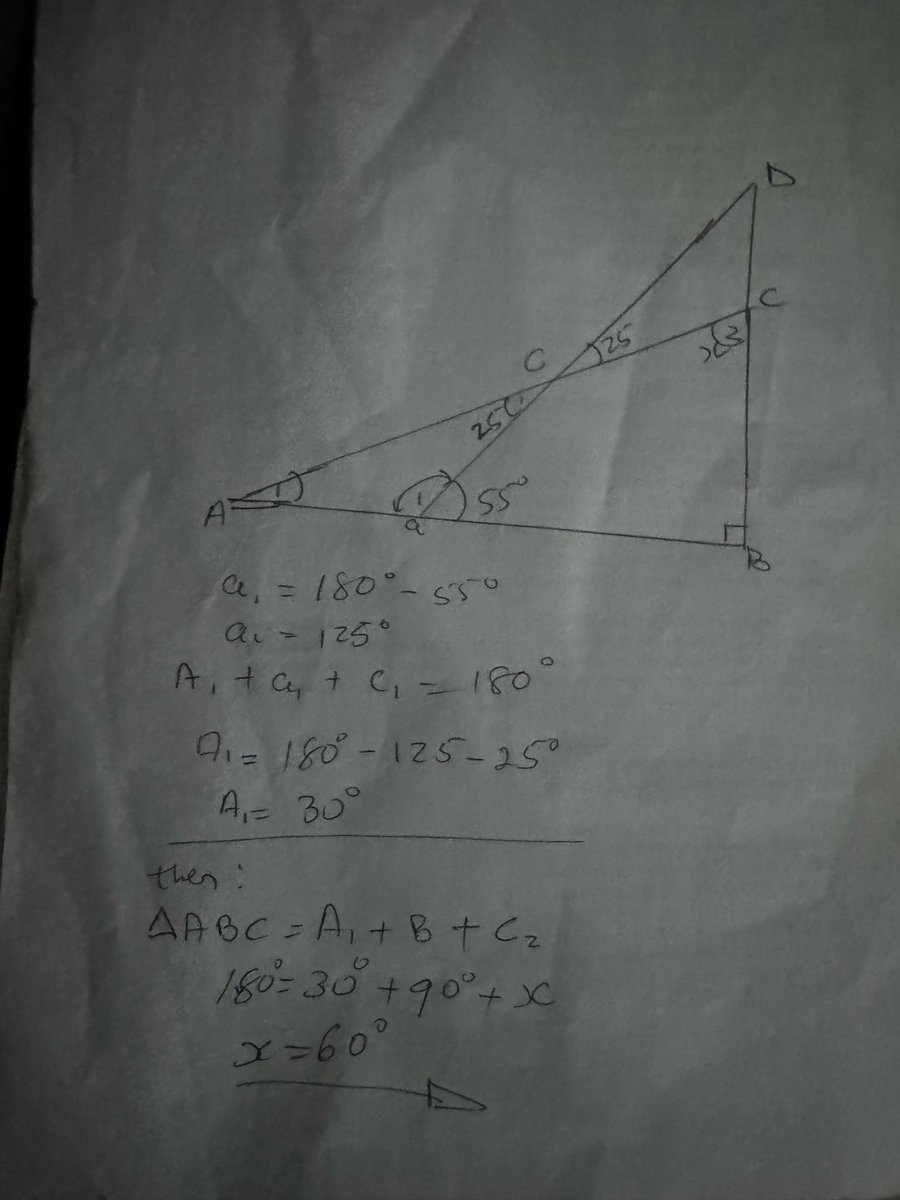 D
C
C
25
x 2
25 1
A 1
1 55°
a
B
a₁ = 180° - 55°
a₁ = 125°
A₁ + a₁ + C₁ = 180°
A₁ = 180° - 125 - 25°
A₁ = 30°
then:
△ABC = A₁ + B + C₂
180° = 30° + 90° + x
x = 60°